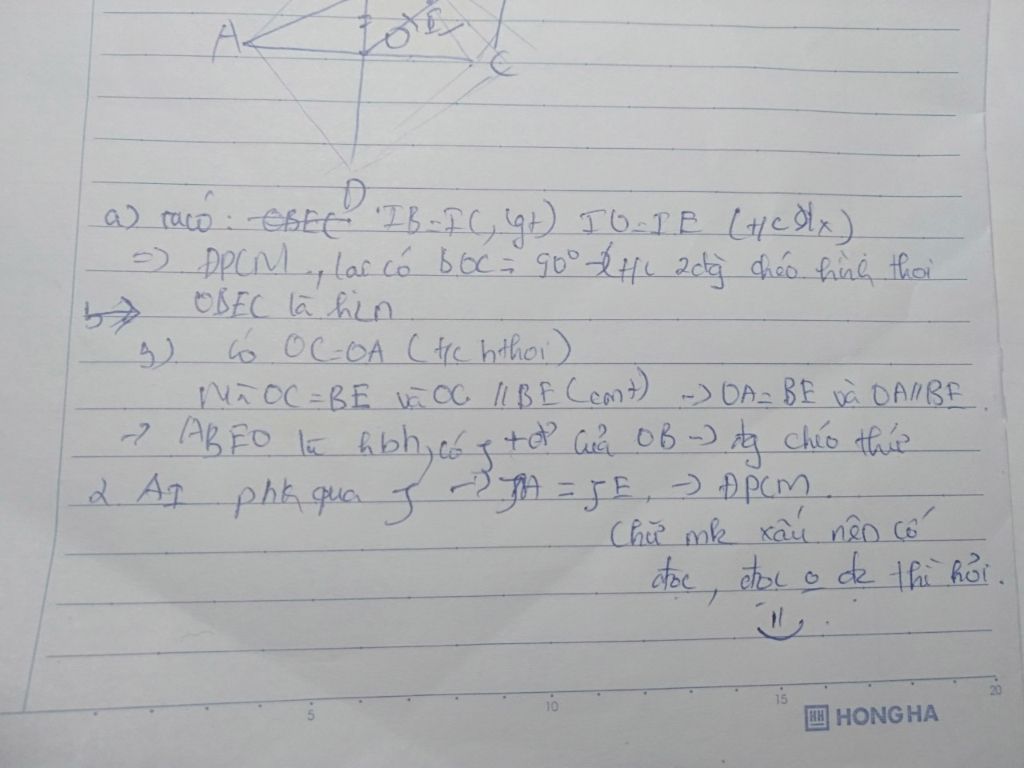 A
O
I
C
D
a) ta có: OBEC IB=IC, (gt) IO=IE (t/c đ/x)
=> ĐPCM, lại có BOC = 90° t/c 2đg chéo hình thoi
b => OBEC là hcn
b) Có OC=OA (t/c hthoi)
Mà OC=BE và OC // BE (cmt) -> OA=BE và OA//BE.
-> ABEO là hbh, có J tđ của OB -> đg chéo thứ
2 AI phk qua J -> JA = JE, -> ĐPCM.
Chữ mk xấu nên cố
đọc, đọc o dc thì hỏi.
5
10
15
20
HONG HA